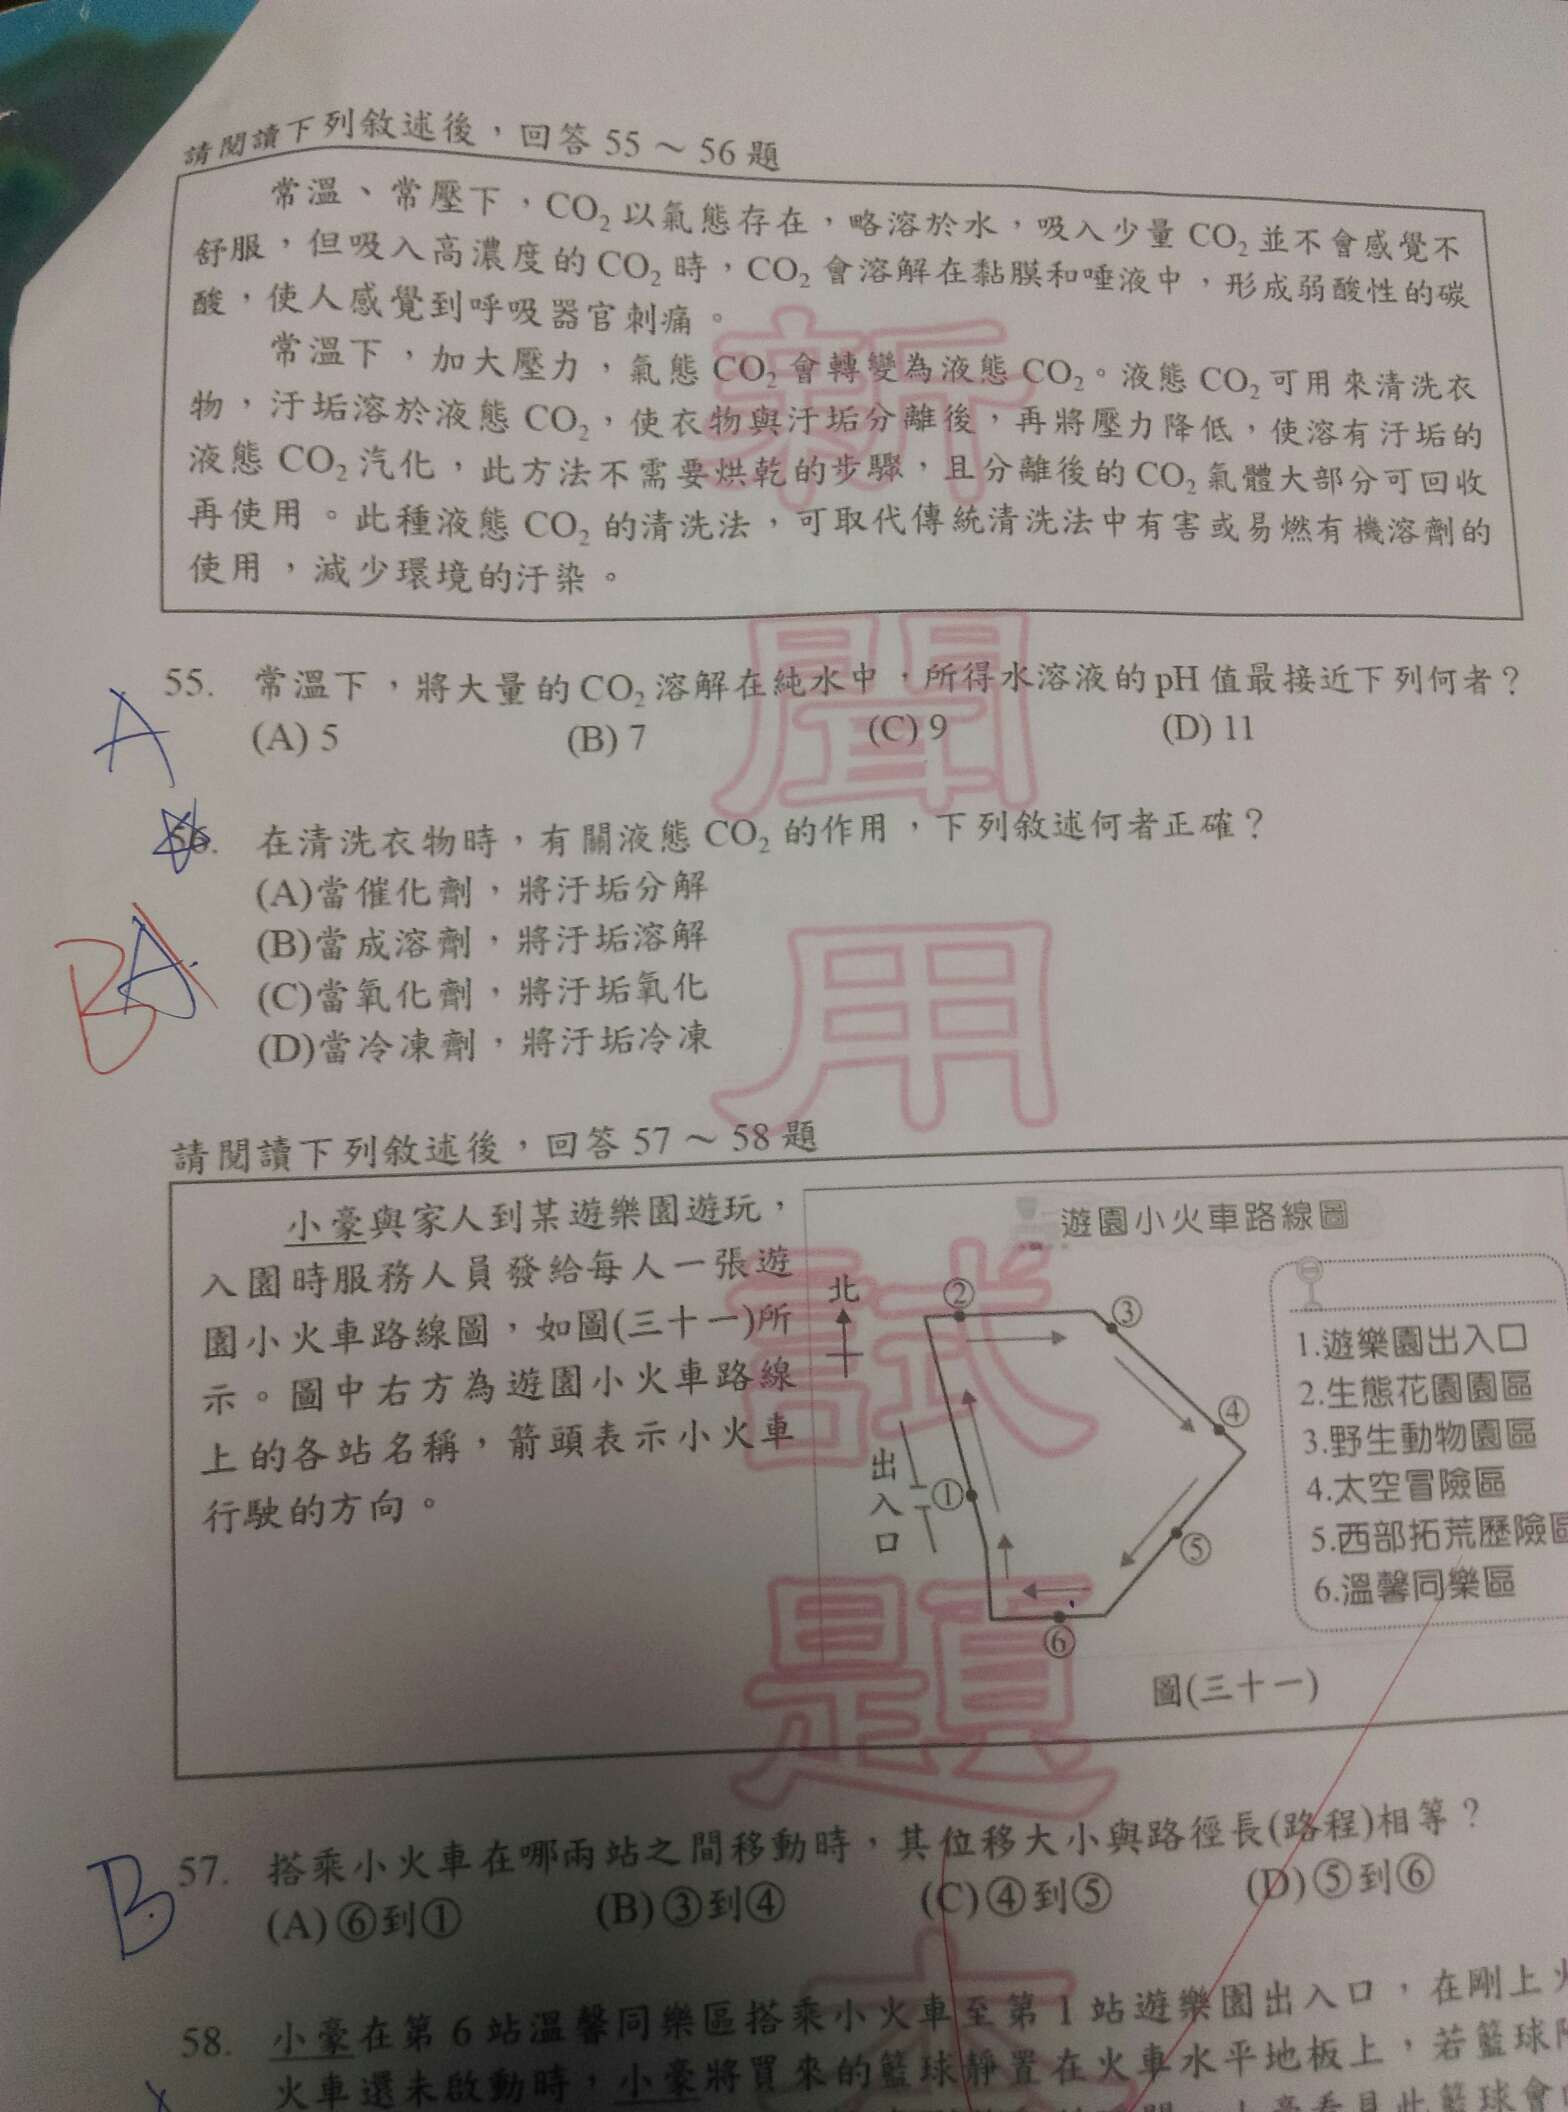 請閱讀下列敘述後，回答 55 ～ 56 題
常溫、常壓下，CO₂ 以氣態存在，略溶於水，吸入少量 CO₂ 並不會感覺不
舒服，但吸入高濃度的 CO₂ 時，CO₂ 會溶解在黏膜和唾液中，形成弱酸性的碳
酸，使人感覺到呼吸器官刺痛。
常溫下，加大壓力，氣態 CO₂ 會轉變為液態 CO₂。液態 CO₂ 可用來清洗衣
物，汙垢溶於液態 CO₂，使衣物與汙垢分離後，再將壓力降低，使溶有汙垢的
液態 CO₂ 汽化，此方法不需要烘乾的步驟，且分離後的 CO₂ 氣體大部分可回收
再使用。此種液態 CO₂ 的清洗法，可取代傳統清洗法中有害或易燃有機溶劑的
使用，減少環境的汙染。
A
55. 常溫下，將大量的 CO₂ 溶解在純水中，所得水溶液的 pH 值最接近下列何者？
(A) 5 (B) 7 (C) 9 (D) 11
56. 在清洗衣物時，有關液態 CO₂ 的作用，下列敘述何者正確？
(A)當催化劑，將汙垢分解
(B)當成溶劑，將汙垢溶解
B A
(C)當氧化劑，將汙垢氧化
(D)當冷凍劑，將汙垢冷凍
請閱讀下列敘述後，回答 57 ～ 58 題
小豪與家人到某遊樂園遊玩，
入園時服務人員發給每人一張遊
園小火車路線圖，如圖(三十一)所
示。圖中右方為遊園小火車路線
上的各站名稱，箭頭表示小火車
行駛的方向。
遊園小火車路線圖
北
②
③
④
出入口
①
⑤
⑥
1.遊樂園出入口
2.生態花園園區
3.野生動物園區
4.太空冒險區
5.西部拓荒歷險區
6.溫馨同樂區
圖(三十一)
B
57. 搭乘小火車在哪兩站之間移動時，其位移大小與路徑長(路程)相等？
(A) ⑥到① (B) ③到④ (C) ④到⑤ (D) ⑤到⑥
58. 小豪在第 6 站溫馨同樂區搭乘小火車至第 1 站遊樂園出入口，在剛上火
火車還未啟動時，小豪將買來的籃球靜置在火車水平地板上，若籃球
看見此籃球會
新聞用試題本